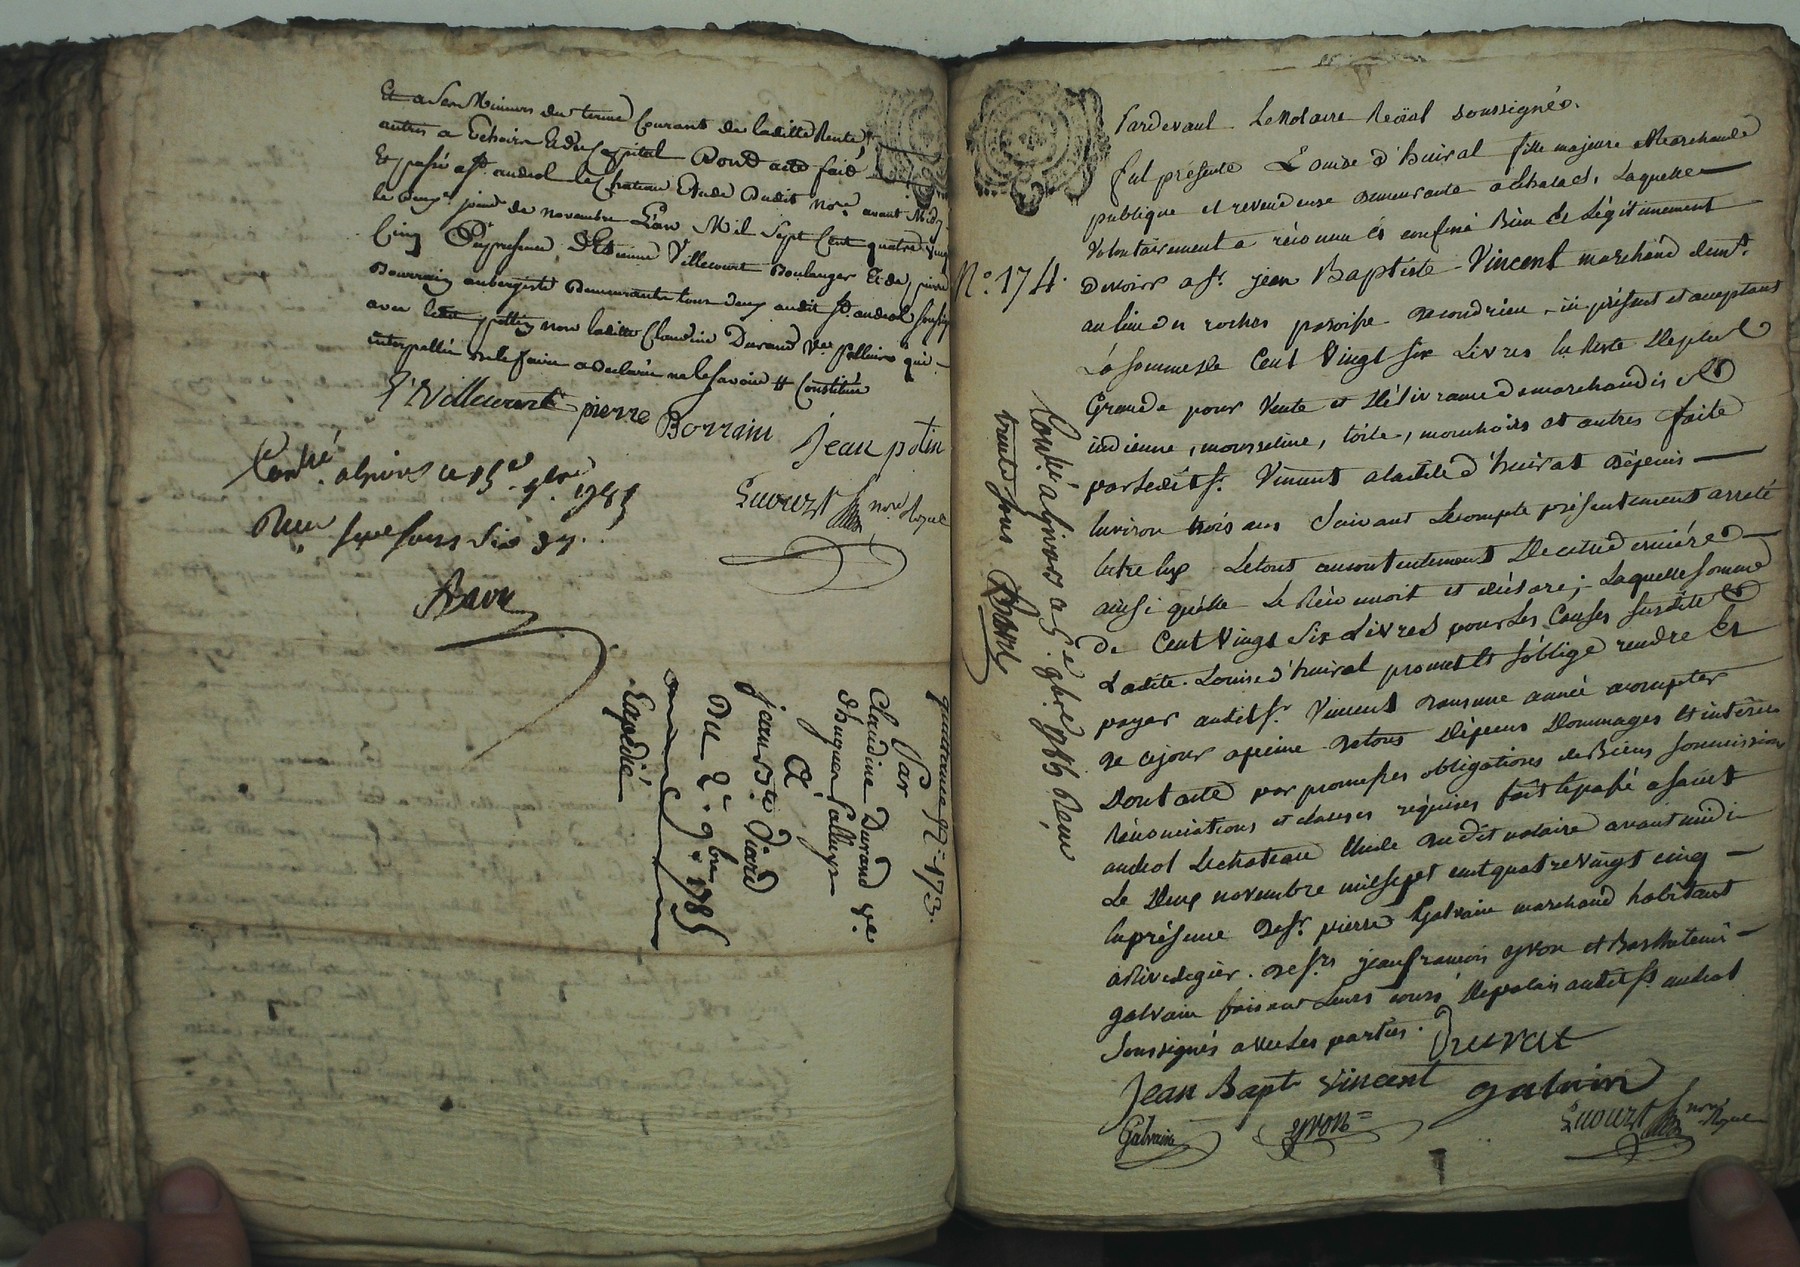 Et a sera Miuners du terme Courant de laditte Rente,
autres a Echoirs Et du Capital Dond acte fait
Et passé a St. andeol le Chateau Etude Dudit nore. avant Midy
le deux jour de novembre L'an Mil Sept Cent quatre vingt
Cinq En presence d'Etienne Villecourt Boulanger Et de pierre
Bourrain aubergiste Demeurants tous deux audit St. andeol soussignés
avec led. pottin non laditte Claudine Durand Vve. palluire qui
interpellée de le faire a declaré ne le savoir # Constituée
E Villecourt pierre
Borrain Jean potin
Contré. a givors ce 15e. 9bre 1785
Reçu sept sous six d.
Bavn
nore Royal
quittance No. 173.
Par
Claudine Durand Vve.
d'huguen Palluyr
à
jean Bte. Diard
Du 2e. 9bre 1785
Expedié
Pardevant Le Notaire Roïal soussigné.
fut présente Louise d'huival fille majeure Marchande
publique et revendeuse demeurante a Laquelle
volontairement a reconnu et confessé Bien et Légitimement
No. 174.
devoir a Sr. jean Baptiste Vincent marchand demt.
au lieu des roches paroisse de condrieu, ici présent et acceptant
La somme de Cent Vingt six Livres la Reste De plus
Grande pour Vente et Délivrance de marchandises
indienne, mousseline, toile, mouchoirs et autres faite
par ledit Sr. Vincent a ladite d'huival depuis
Environ trois ans Suivant Le compte présentement arreté
Entre Eux Le tout au contentement De cette derniére
ainsi quelle Le Reconnoit et déclare; Laquelle somme
de Cent Vingt Six Livres pour Les Causes susdites
Ladite Louise d'huival promet et s'oblige rendre Et
payer audit Sr. Vincent Dans une année a compter
de ce jour a peine de tous Dépens Dommages et intérêts
Dont acte par promesses obligations de Biens soumissions
Rénonciations et clauses requises fait et passé a saint
andeol Le chateau Etude dudit notaire avant midi
Le Deux novembre mil sept cent quatre vingt cinq
En présence de Sr. pierre Galvain marchand habitant
a Rive de gier. de Srs. jean françois yvon et Barthelemi
galvain faisant Leurs cours De palais audit St. andeol
Soussignés avec Les parties. Duval
Jean Bapt Vincent galvin
Galvain yvon
nore Royal
Contré. a givors ce 15e 9bre 1785 Reçu
trente sous Bavn